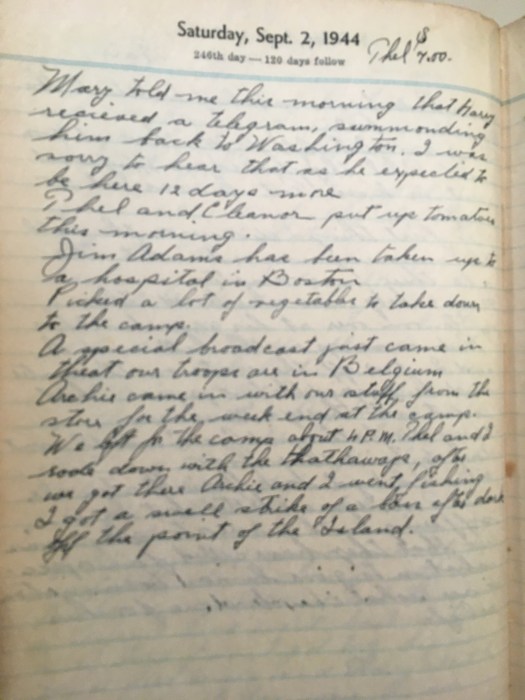 Saturday, Sept. 2, 1944
246th day — 120 days follow
Phel $7.00.
Mary told me this morning that Harry
recieved a telegram, summonding
him back to Washington. I was
sorry to hear that as he expected to
be here 12 days more
Phel and Eleanor put up tomatoes
this morning.
Jim Adams has been taken up to
a hospital in Boston
Picked a lot of vegetables to take down
to the camp.
A special broadcast just came in
that our troops are in Belgium
Archie came in with our stuff from the
store for the week end at the camp.
We left for the camp about 4 P.M. Phel and I
rode down with the Hathaways, after
we got there Archie and I went fishing
I got a small strike of a bass after dark
off the point of the Island.